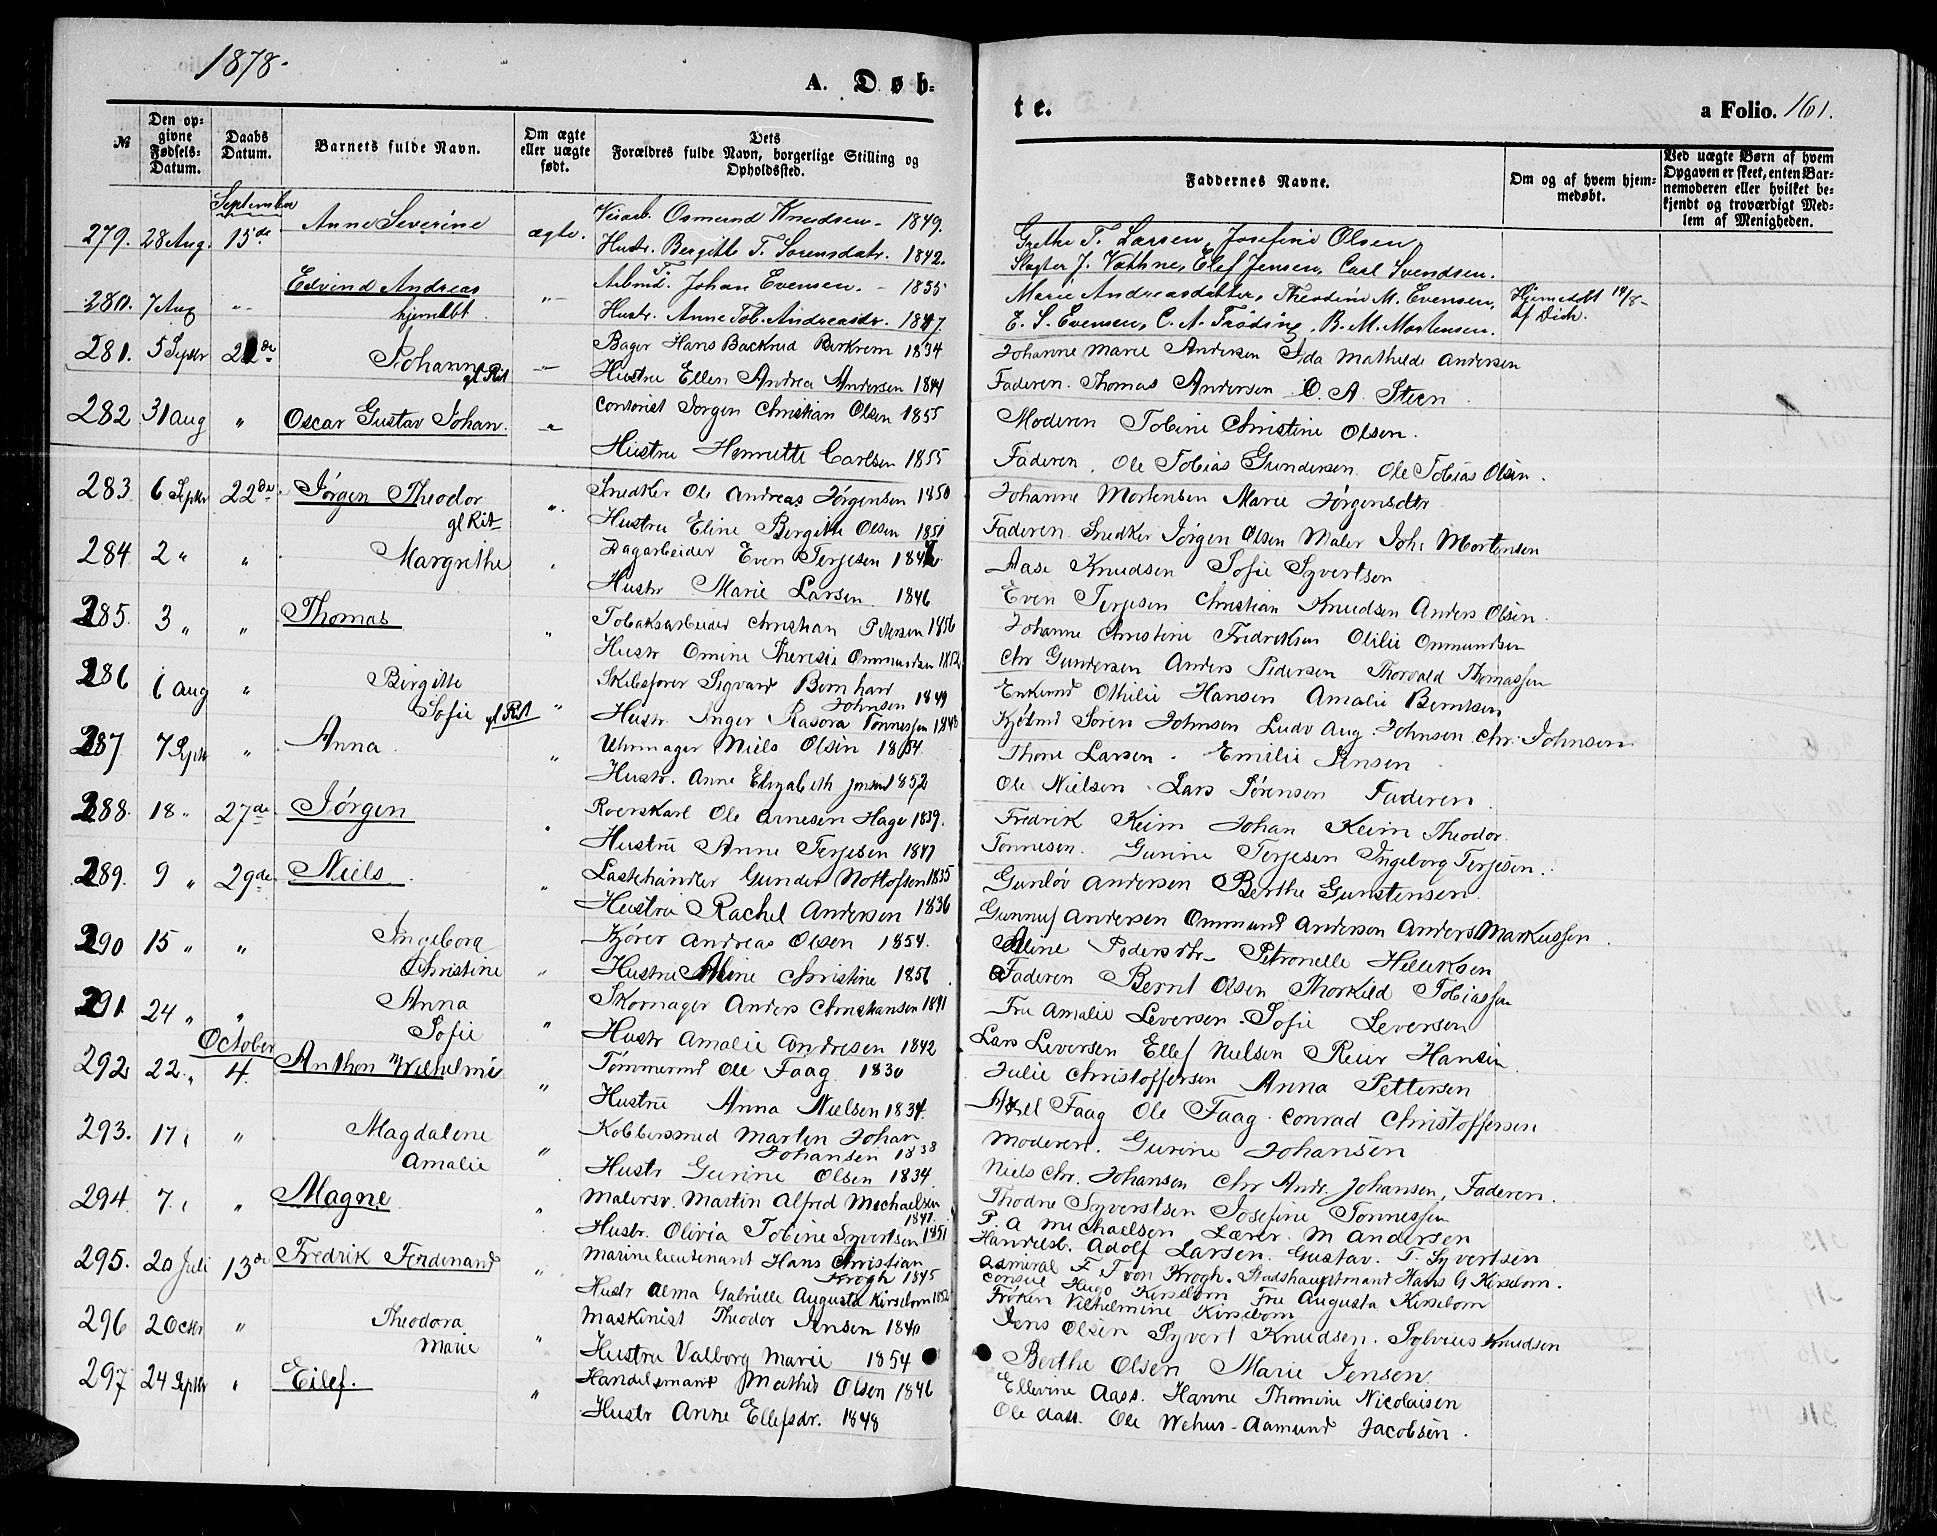 1878.
A. Døb-
№
Den op-
givne
Fødsels-
Datum.
Daabs
Datum.
Barnets fulde Navn.
Om ægte
eller uægte
født.
Dets
Forældres fulde Navn, borgerlige Stilling og
Opholdssted.
September
279. 28 Aug. 15de Anne Severine ægte. Osmund Knudsen. 1849.
Hustr. Bergitte T. Sørensdatr. 1842.
280. 7 Aug "- Edvind Andreas "- Arbmd. Johan Evensen. - 1855
hjemdbt. Hustr. Anne Tob. Andreasdr. 1847.
281. 5 Septbr 22de Johanne "- Bager Hans Backrud Birkrem 1834
gl Rit Hustru Ellen Andrea Andersen 1844
282 31 aug " Oscar Gustav Johan. " Contorist Jørgen Christian Olsen 1855
Hustru Henriette Carlsen 1855
283 6 Septbr 22de Jørgen Theodor ". Snedker Ole Andreas Jørgensen 1850
gl Rit Hustru Eline Bergitte Olsen 1851
284 2 " " Margrethe " Dagarbeider Even Terjesen
Hustr Marie Larsen 1846
285. 3 " " Thomas " Tobaksarbeider Christian Petersen 1856
Hustr Omine Theresie Ommundsen 1852
286 6 aug " Birgitte Skibsfører Sigvard Bernhard
Sofie gl Rit " Johnsen 1849
Hustr. Inger Rasora Tønnessen 1843
287 7 Septbr " Anna. " Uhrmager Niels Olsen 1854.
Hustr. Anne Elisabeth Jensen 1852
288. 18 " 27de Jørgen " Roerskarl Ole Arnesen Hage 1839.
Hustru Anne Terjesen 1847
289. 9 " 29de Niels. " Lastehandler Gunder Nottofsen 1835
Hustru Rachel Andersen 1836
290 15 " " Ingeborg Kjører Andreas Olsen 1854.
Christine " Hustru Aline Christine 1856
291 24 " " Anna Skomager Anders Christiansen 1841
Sofie " Hustr Amalie Andresen 1842
October
292 22 " 4. Anthon Wilhelm " Tømmermd Ole Faag. 1830
Hustru Anna Nielsen 1834.
293. 17 " " Magdalene Kobbersmed Martin Johan
Amalie " Johansen 1838
Hustr Gurine Olsen 1834.
294. 7. " " Magne " Malersv. Martin Alfred Michaelsen
1847.
Hustr. Olivia Tobine Syvertsen 1851
295. 20 Juli 13de Fredrik Ferdinand " Marinelieutenant Hans Christian
Krogh 1845
Hustr Alma Gabrielle Augusta Kirsebom 1852
296 2 Octbr " Theodora Maskinist Theodor Jensen 1840
Marie " Hustru Valborg Marie 1854
297 24 Septbr " Eilef. " Handelsmand Mathis Olsen 1846
Hustr Anne Ellefsdr. 1848
te.
a Folio. 161.
Faddernes Navne.
Om og af hvem hjem-
medøbt.
Ved uægte Børn af hvem
Opgaven er skeet, enten Bar-
nemoderen eller hvilket be-
kjendt og troværdigt Med-
lem af Menigheden.
Grethe T. Larsen, Josefine Olsen,
Slagter J. Vathne, Elef Jensen, Carl Svendsen.
Marie Andreasdatter, Theodine M. Evensen, Hjemedøbt 14/8-
E. S. Evensen, C. A. Trøding, B. M. Mortensen. af Dich.
Johanne Marie Andersen Ida Mathilde Andersen
Faderen. Thomas Andersen O. A. Steen.
Moderen Tobine Christine Olsen.
Faderen. Ole Tobias Gundersen Ole Tobias Olsen.
Johanne Mortensen Marie Jørgensdtr
Faderen. Snedker Jørgen Olsen Maler Joh. Mortensen
Aase Knudsen Sofie Syvertsen
Even Terjesen Christian Knudsen Anders Olsen.
Johanne Christine Fredriksen Otilie Ommundsen
Chr Gundersen Anders Pedersen Thorvald Thomassen
Enkemd Othilie Hansen Amalie Berntsen
Kjøbmd Søren Johnsen Ludv Aug Johnsen Chr. Johnsen
Thone Larsen. Emilie Jensen
Ole Nielsen. Lars Sørensen Faderen.
Fredrik Keim Johan Keim Theodor.
Tønnesen. Gurine Terjesen Ingeborg Terjesen.
Gunløv Andersen Berthe Gunstensen.
Gunnuf Andersen Ommund Anderson Anders Markussen.
Aline Pedersdtr- Petronelle Hetleksen
Faderen Bernt Olsen Thorkild Tobiassen
Fru Amalie Leversen. Sofie Leversen
Lars Leversen Ellef Nielsen Reier Hansen.
Julie Christoffersen Anna Pettersen
Axel Faag Ole Faag. Conrad Christoffersen
Moderen. Gurine Johansen
Niels Chr. Johansen Chr Andr. Johansen, Faderen.
Thodne Syvertsen Josefine Tønnessen
P. A Michaelsen Lærer. M Andersen
Handelsb. Adolf Larsen. Gustav. T. Syvertsen
Admiral F T von Krogh. Stadshauptmand Hans G Kirsebom.
Consul Hugo Kirsebom Fru Augusta Kirsebom
Frøken Vilhelmine Kirsebom
Jens Olsen Syvert Knudsen. Sylvius Knudsen
Berthe Olsen Marie Jensen
Ellevine Aass. Hanne Thomine Nicolaisen
Ole Aass. Ole Wehus - Aamund Jacobsen.